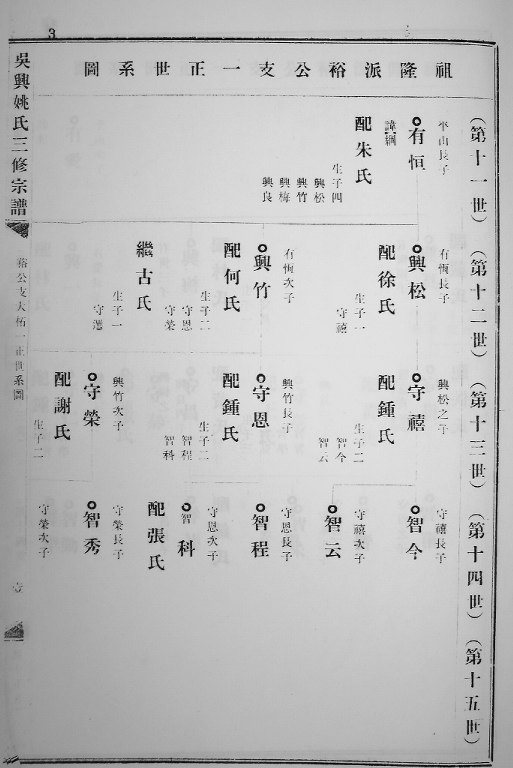 3
祖隆派裕公支一正世系圖
吳興姚氏三修宗譜
裕公支大柘一正世系圖
壹
(第十一世)
平山長子
有恒
諱綱
配朱氏
生子四
興松
興竹
興梅
興良
(第十二世)
有恆長子
興松
配徐氏
生子一
守禧
有恆次子
興竹
配何氏
生子二
守恩
守榮
繼古氏
生子一
(第十三世)
興松之子
守禧
配鍾氏
生子二
智今
智云
興竹長子
守恩
配鍾氏
生子二
智程
智科
興竹次子
守榮
配謝氏
生子二
(第十四世)
守禧長子
智今
守禧次子
智云
守恩長子
智程
守恩次子
智科
配張氏
守榮長子
智秀
守榮次子
(第十五世)